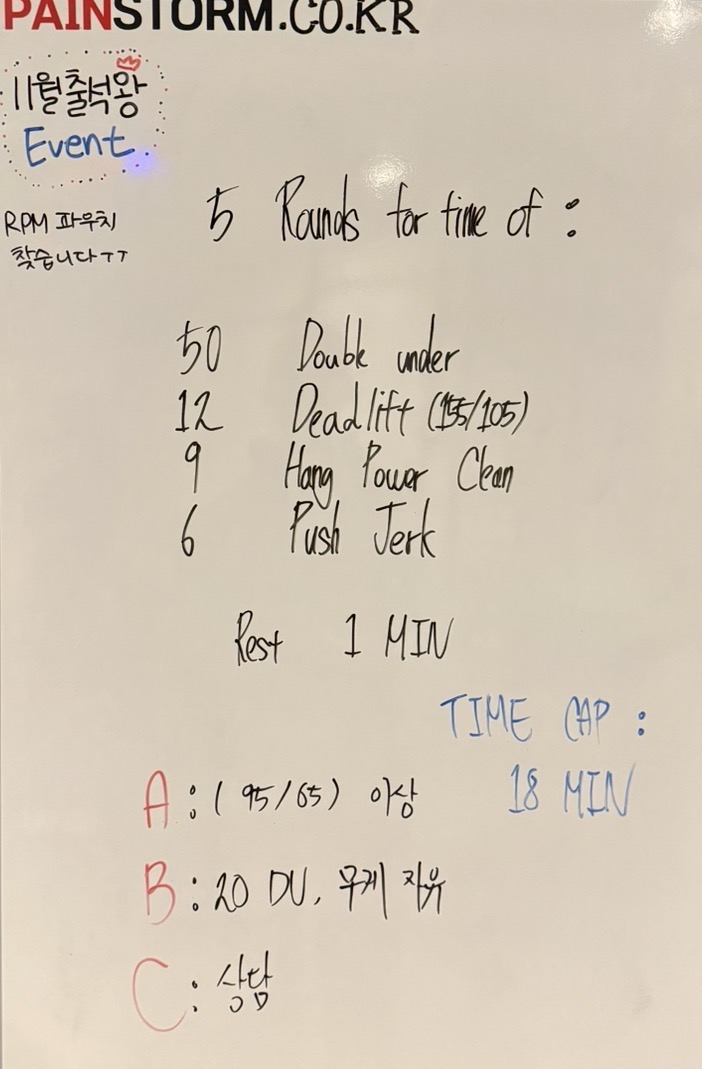 PAINSTORM.CO.KR
11월 출석왕
Event
RPM 파우치
찾습니다ㅜㅜ
5 Rounds for time of :
50 Double under
12 Deadlift (155/105)
9 Hang Power Clean
6 Push Jerk
Rest 1 MIN
TIME CAP :
18 MIN
A : ( 95/65) 이상
B : 20 DU, 무게 자유
C : 상담